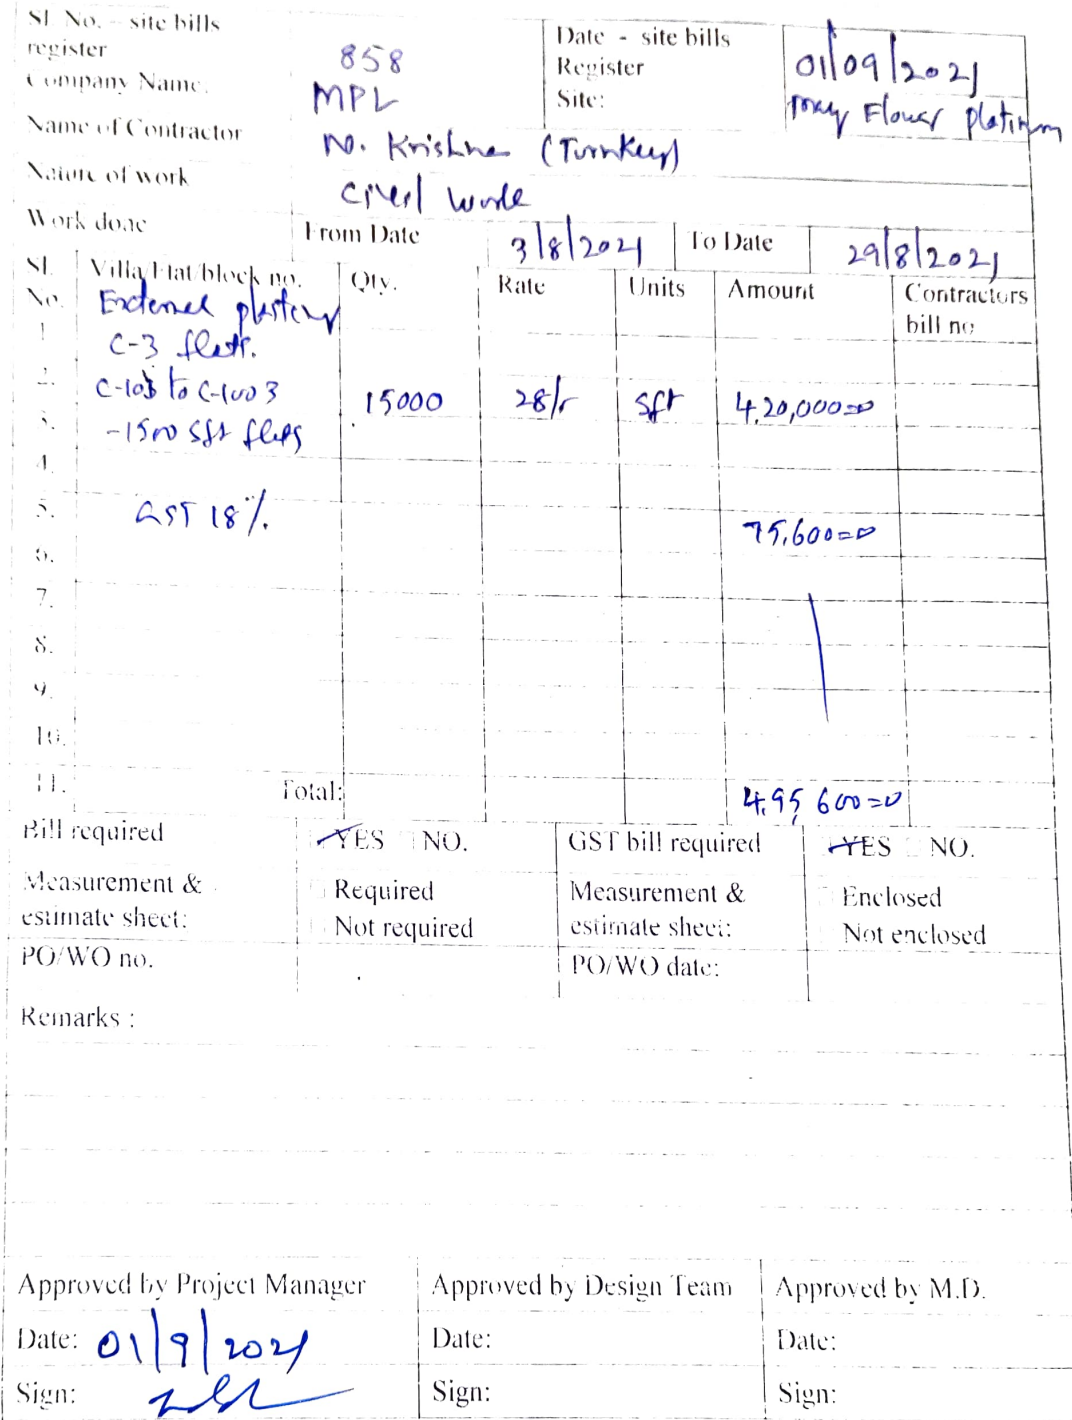 Sl. No. – site bills register 858 Date - site bills Register 01/09/2021
Company Name: MPL Site: May Flower platinum
Name of Contractor N. Krishna (Turnkey)
Nature of work civil work
Work done From Date 3/8/2021 To Date 29/8/2021
Sl. No. Villa/Flat/block no. Qty. Rate Units Amount Contractors bill no
External plastering
1
C-3 flats.
2.
C-103 to C-1003 15000 28/- sft 4,20,000=0
3.
-1500 sft flats
4.
5. GST 18% 75,600=0
6.
7.
8.
9.
10.
11. Total: 4,95,600=0
Bill required YES NO. GST bill required YES NO.
Measurement & estimate sheet: Required Measurement & estimate sheet: Enclosed
Not required Not enclosed
PO/WO no. PO/WO date:
Remarks :
Approved by Project Manager Approved by Design Team Approved by M.D.
Date: 01/9/2021 Date: Date:
Sign: Sign: Sign: